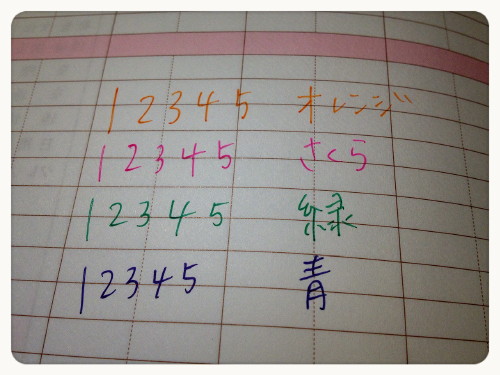 12345 オレンジ
12345 さくら
12345 緑
12345 青